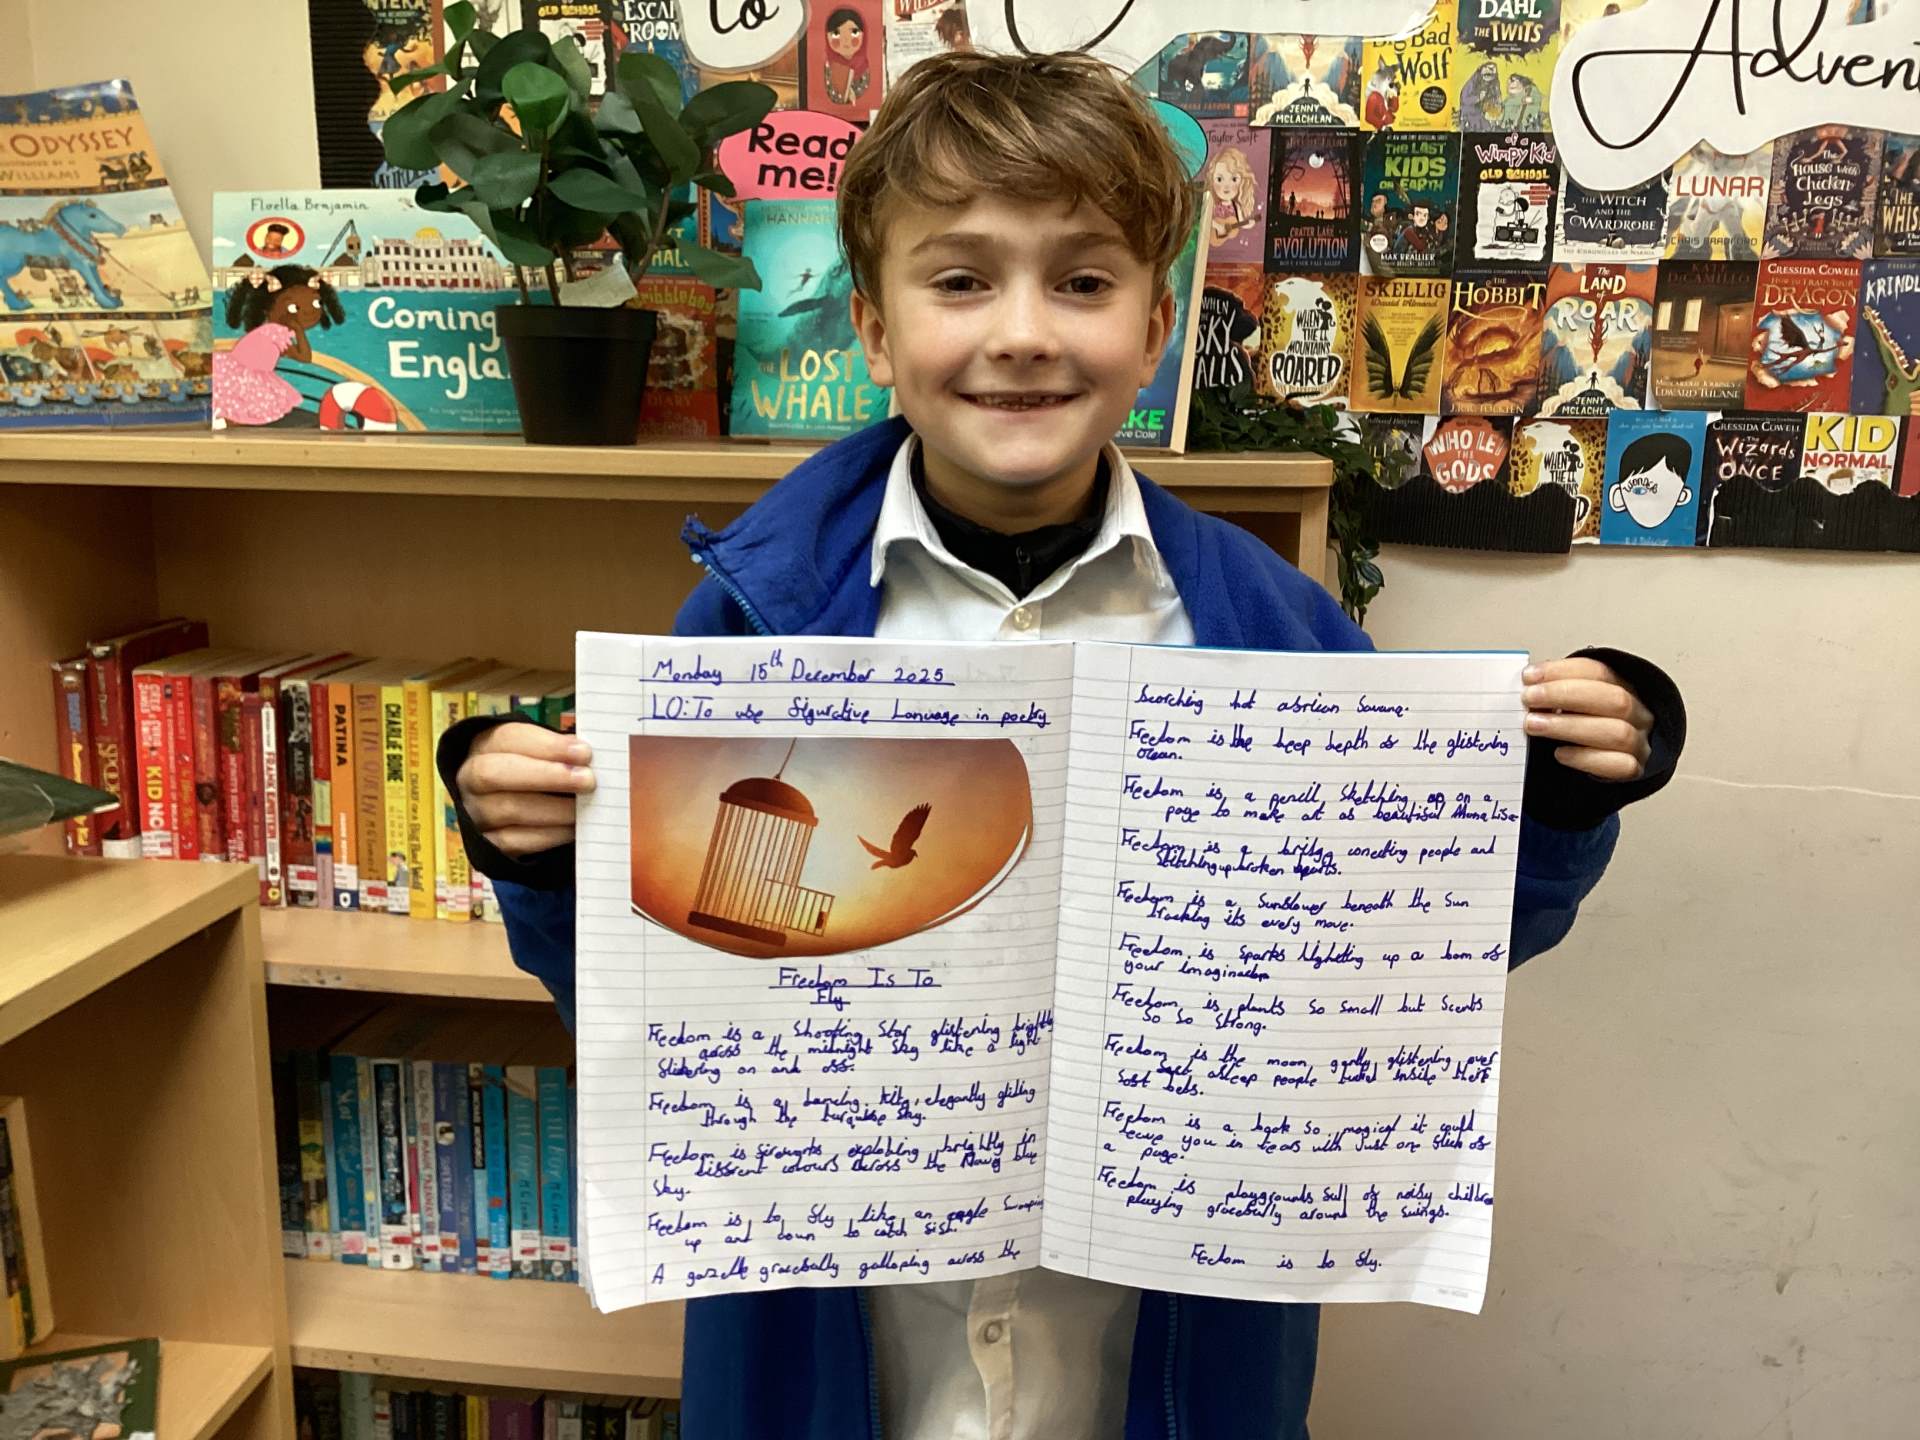 ODYSSEY
WILLIAMS
Floella Benjamin
Coming
Engla
ESCA
ROOM
OLD SCHOOL
to
Read
me!!
THE LOST
WHALE
HANNAH
Adven
Big Bad
Wolf
DAHL
THE TWITS
JENNY
MCLACHLAN
Taylor Swift
CRATER LAKE
EVOLUTION
THE LAST
KIDS
ON EARTH
MAX BRALLIER
Wimpy Kid
OLD SCHOOL
THE WITCH
AND THE
WARDROBE
LUNAR
CHRIS BRADFORD
The
HOUSE with
Chicken
Legs
THE
WHIS
WHEN
SKY
FALLS
WHEN
THE
MOUNTAINS
ROARED
SKELLIG
David Almond
THE
HOBBIT
J.R.R. TOLKIEN
The
LAND
of
ROAR
JENNY MCLACHLAN
KATE
DiCAMILLO
EDWARD TULANE
CRESSIDA COWELL
HOW TO TRAIN YOUR
DRAGON
KRINDL
WHO LET
THE
GODS
WHEN
Wonder
CRESSIDA COWELL
The
Wizards
of
ONCE
KID
NORMAL
KID NO
FRANK
PATINA
BETTA QUEEN
CHARLIE BONE
BEN MILLER
Monday 15th December 2025
LO: To use figurative Lanuage in poetry
Freedom Is To
Fly
Freedom is a shooting star glistening brightly
across the midnight sky like a light
flickering on and off.
Freedom is a dancing kite, elegantly gliding
through the turquoise sky.
Freedom is fireworks exploding brightly in
different colours across the Navy blue
sky.
Freedom is to fly like an eagle swooping
up and down to catch fish.
A gazelle gracefully galloping across the
Scorching hot african Savana.
Freedom is the deep depth of the glistening
ocean.
Freedom is a pencil sketching on a
page to make art as beautiful Mona Lisa
Freedom is a bridge conecting people and
stitching up broken parts.
Freedom is a sunflower beneath the sun
tracking its every move.
Freedom is sparks lighting up a bom of
your imagination
Freedom is plants so small but scents
so so strong.
Freedom is the moon gently glistening over
asleep people inside their
soft beds.
Freedom is a book so magical it could
leave you in tears with just one flick of
a page.
Freedom is playgrounds full of noisy children
playing gracefully around the swings.
Freedom is to fly.